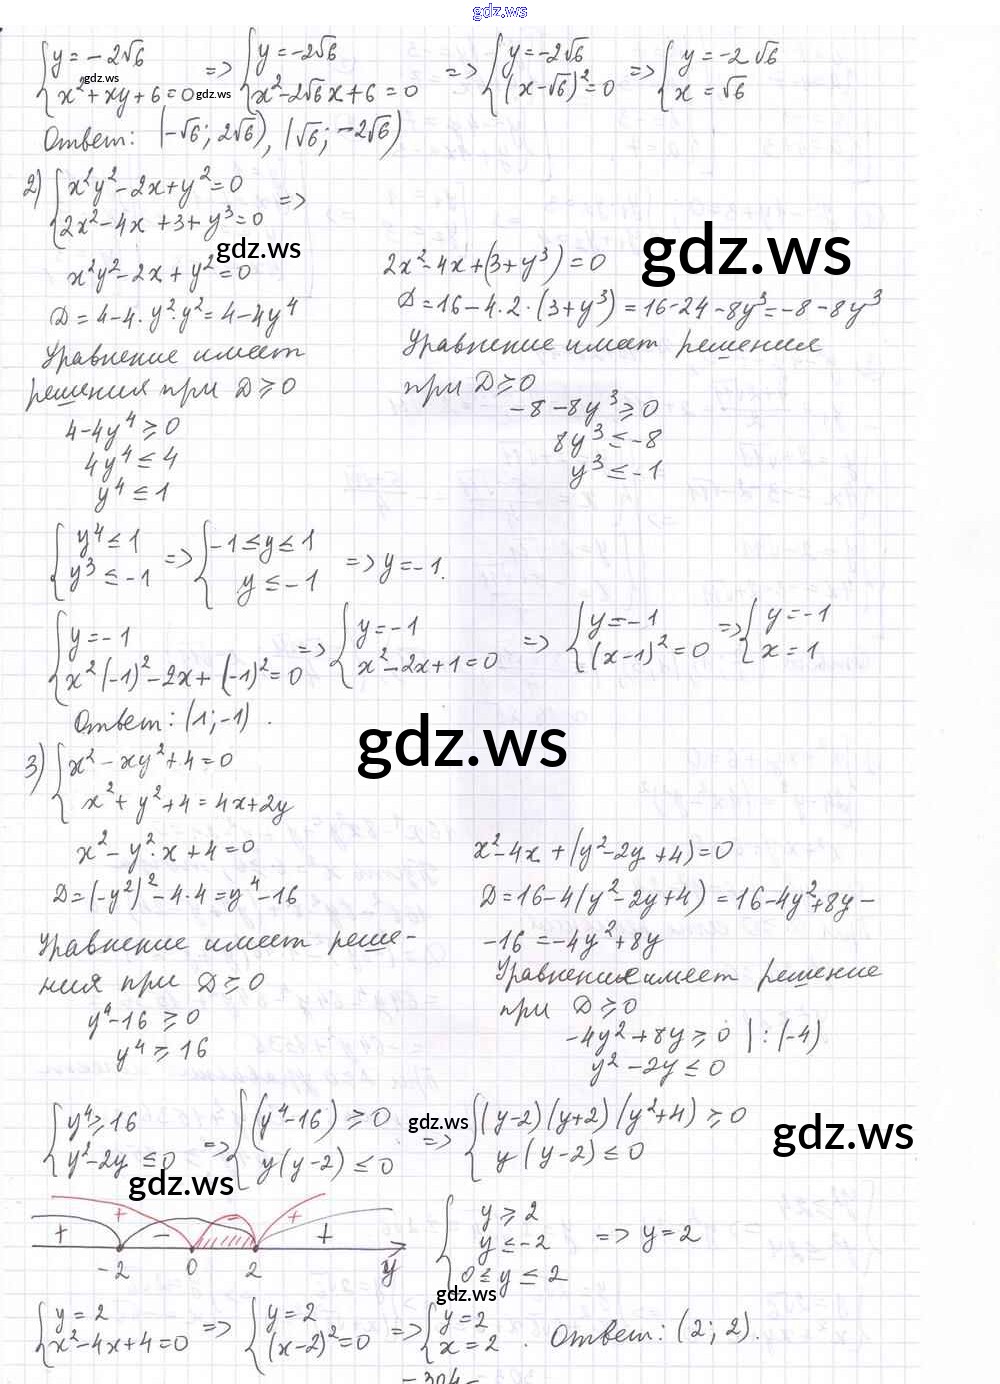 gdz.ws
{ y = -2√6 => { y = -2√6 => { y = -2√6 => { y = -2√6
{ x² + xy + 6 = 0 { x² - 2√6x + 6 = 0 { (x - √6)² = 0 { x = √6
gdz.ws gdz.ws
Ответ: (-√6; 2√6), (√6; -2√6)
2) { x²y² - 2x + y² = 0
{ 2x² - 4x + 3 + y³ = 0 =>
gdz.ws gdz.ws
x²y² - 2x + y² = 0
D = 4 - 4·y²·y² = 4 - 4y⁴
Уравнение имеет
решения при D ≥ 0
4 - 4y⁴ ≥ 0
4y⁴ ≤ 4
y⁴ ≤ 1
2x² - 4x + (3 + y³) = 0
D = 16 - 4·2·(3 + y³) = 16 - 24 - 8y³ = -8 - 8y³
Уравнение имеет решения
при D ≥ 0
-8 - 8y³ ≥ 0
8y³ ≤ -8
y³ ≤ -1
{ y⁴ ≤ 1 => { -1 ≤ y ≤ 1 => y = -1.
{ y³ ≤ -1 { y ≤ -1
{ y = -1 => { y = -1 => { y = -1 => { y = -1
{ x²(-1)² - 2x + (-1)² = 0 { x² - 2x + 1 = 0 { (x - 1)² = 0 { x = 1
Ответ: (1; -1).
gdz.ws
3) { x² - xy² + 4 = 0
{ x² + y² + 4 = 4x + 2y
x² - y²·x + 4 = 0
D = (-y²)² - 4·4 = y⁴ - 16
Уравнение имеет реше-
ния при D ≥ 0
y⁴ - 16 ≥ 0
y⁴ ≥ 16
x² - 4x + (y² - 2y + 4) = 0
D = 16 - 4(y² - 2y + 4) = 16 - 4y² + 8y -
- 16 = -4y² + 8y
Уравнения имеет решение
при D ≥ 0
-4y² + 8y ≥ 0 | : (-4)
y² - 2y ≤ 0
{ y⁴ ≥ 16 => { (y⁴ - 16) ≥ 0 => { (y - 2)(y + 2)(y² + 4) ≥ 0
{ y² - 2y ≤ 0 { y(y - 2) ≤ 0 { y(y - 2) ≤ 0
gdz.ws gdz.ws gdz.ws
+ + - - + +
-2 0 2 y
{ y ≥ 2
{ y ≤ -2 => y = 2
{ 0 ≤ y ≤ 2
gdz.ws
{ y = 2 => { y = 2 => { y = 2
{ x² - 4x + 4 = 0 { (x - 2)² = 0 { x = 2. Ответ: (2; 2).
- 304 -